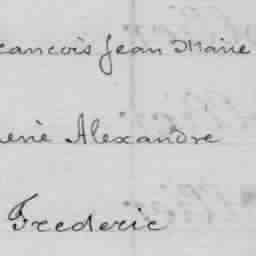 rancois Jean Marie
René Alexandre
Frederic